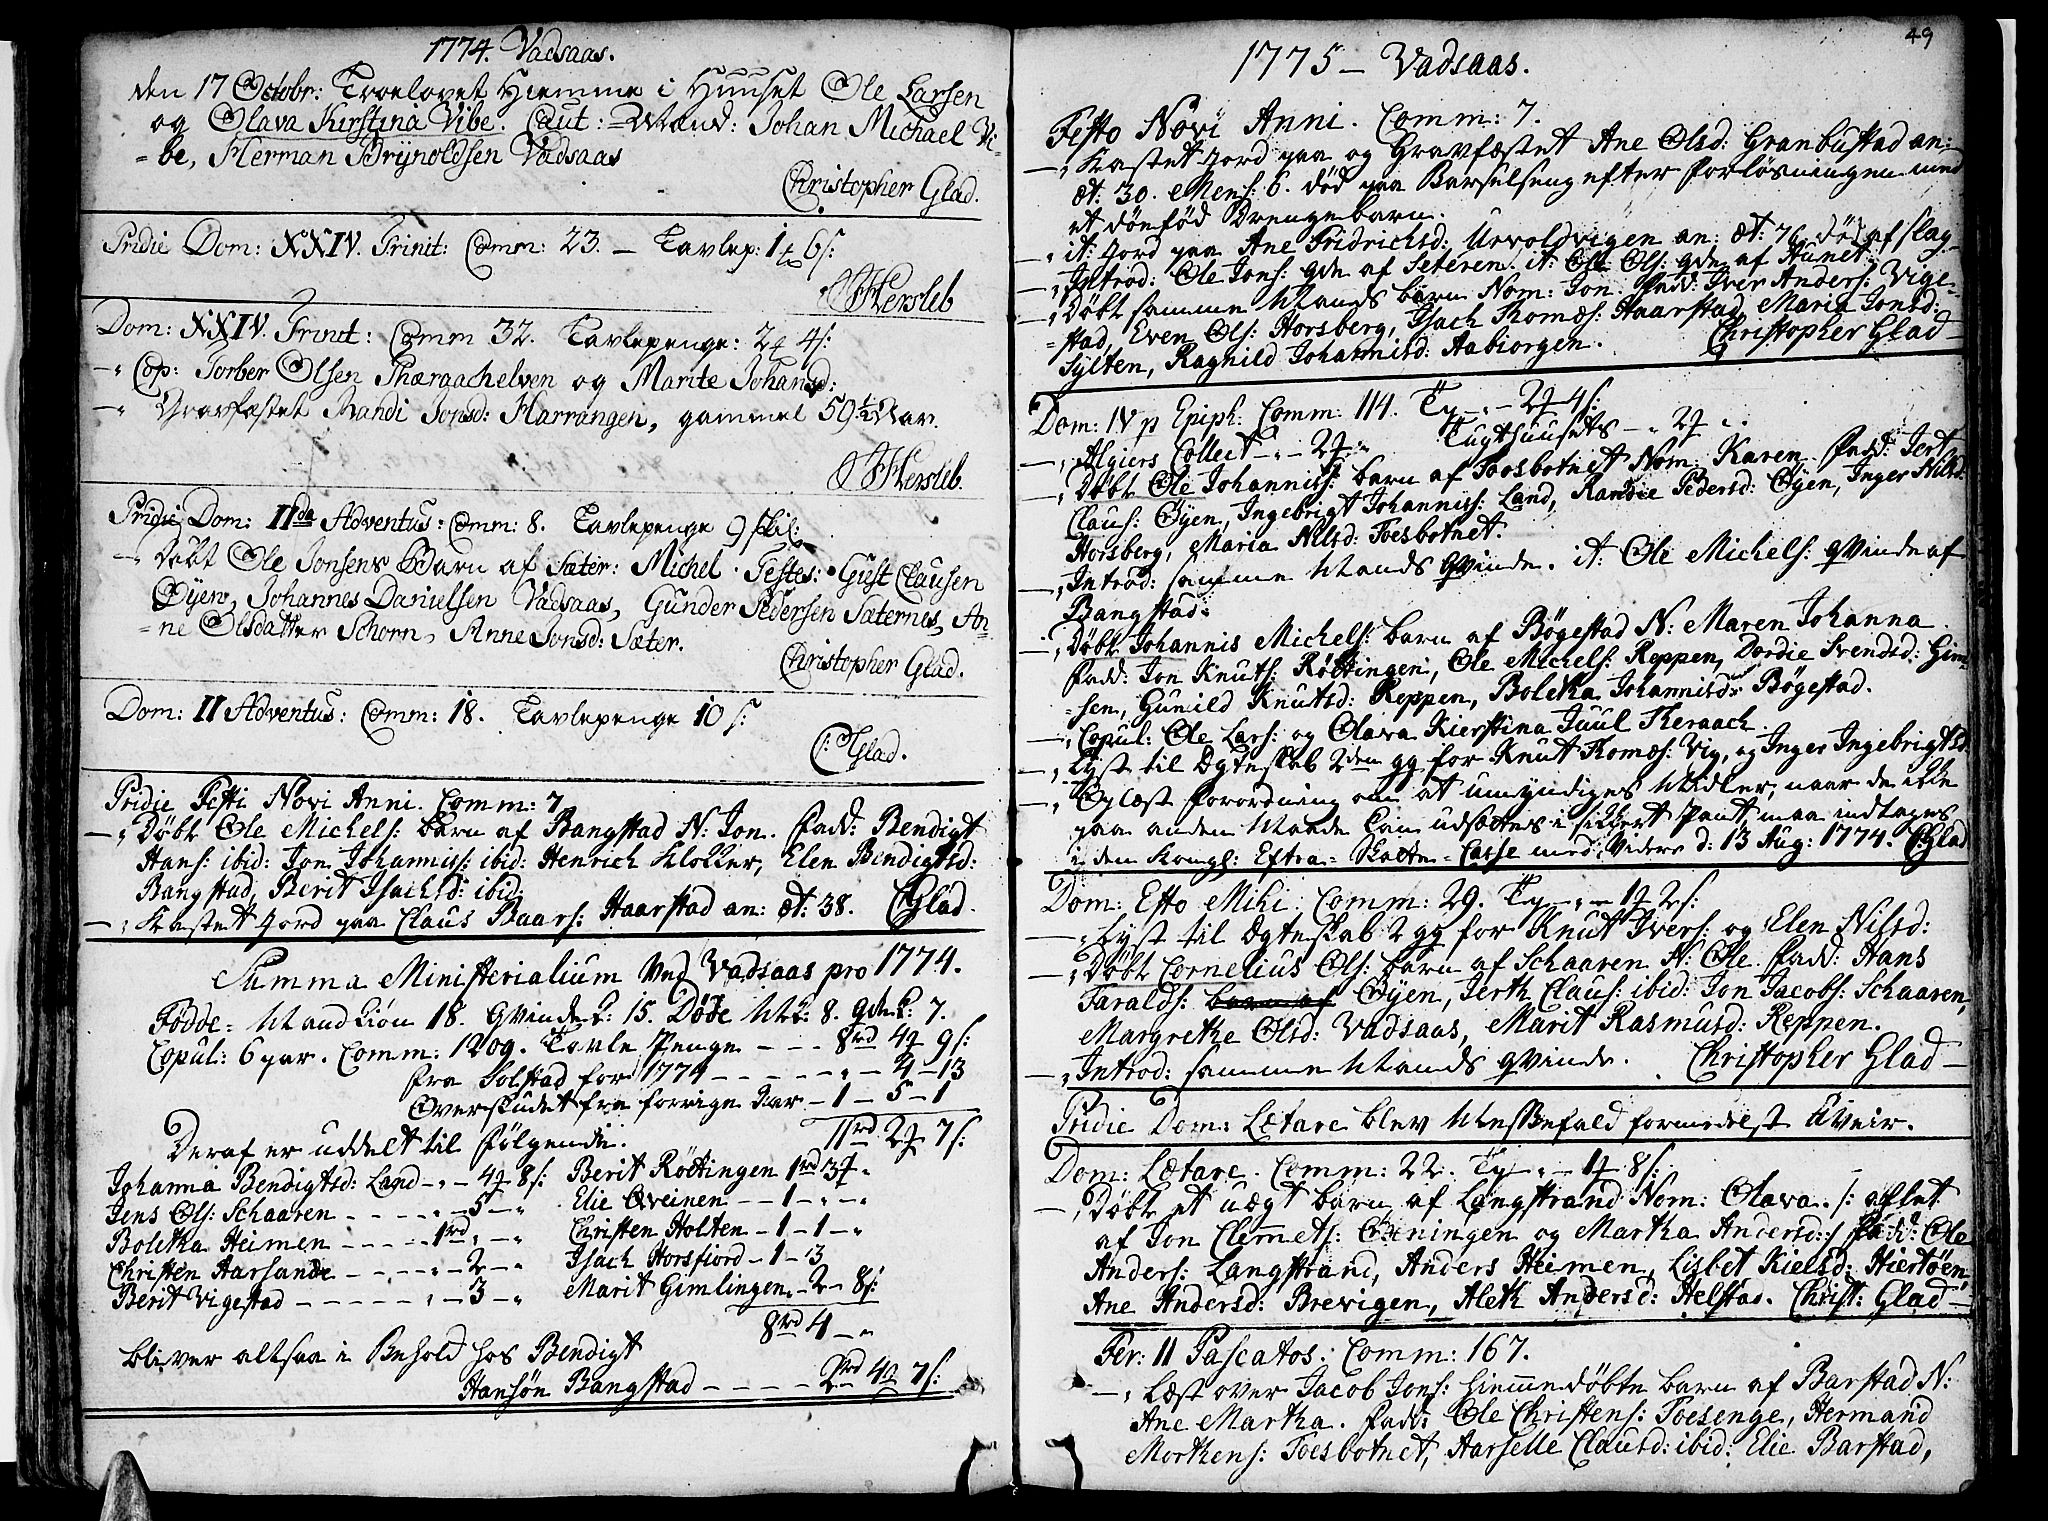 1774. Vadsaas.
den 17 Octobr: Troelovet Hiemme i Huuset Ole Larsen
og Olava Kirstina Vibe. Caut:=Mænd: Johan Michael Vi-
=be, Herman Brÿnoldsen Vadsaas
Christopher Glad.
Pridie Dom: XXIV. Trinit: Comm: 23. – Tavlep: 1 6 s:
Hersleb
Dom: XXIV. Trinit: Comm 32. Tavlepenge: 2 4 s:
–" Cop: Torber Olsen Thæraachelven og Marite Johansd:
–" Gravfæstet Randi Jonsd: Harrangen, gammel 50½ Aar.
Hersleb.
Pridie Dom: IIda Adventus: Comm: 8. Tavlepenge 9 skil:
–" Døbt Ole Jonsens Barn af Sæter: Michel. Testes: Gust Clausen
Øÿen, Johannes Danielsen Vadsaas, Gunder Pedersen Sæternes, An-
=ne Olsdatter Schorn, Anne Jonsd: Sæter.
Christopher Glad.
Dom: II Adventus: Comm: 18. Tavlepenge 10 s:
C: Glad.
Pridie Festi Novi Anni. Comm: 7
–" Døbt Ole Michels: barn af Bangstad N: Jon. Fadd: Bendigt
Hans: ibid: Jon Johanniss: ibid: Henrich Klokker, Elen Bendigtsd:
Bangstad, Berit Isachsd: ibid:
–" Kastet Jord paa Claus Baars: Haarstad an: æt: 38. CGlad.
Summa Ministerialium ved Vadsaas pro 1774.
Fødde= Mandkiøn 18. Qvinde k: 15. Døde Mk: 8. Qdek: 7.
Copul: 6 par. Comm: 1209. Tavle Penge – – – 8rd 4 9 s:
fra Solstad for 1774 – – – – – " – 4 – 13
Overskudet fra forrige Aar – 1 – 5 – 1
Deraf er uddelt til følgende. 11rd 2 7 s:
Johanna Bendigtsd: Land – " – 4 8 s: Berit Røttingen 1rd 3 "
Jens Ols: Schaaren – – – – " – 5 – " Elie Qveinen – – 1 – " – "
Boletha Heimen – – – – 1rd " – " Christen Holten – 1 – 1 – "
Christen Aarsande – – – – " – 2 – " Isach Horsfiord – 1 – 3
Berit Vigestad – – – – – " – 3 – " Marit Gimlingen " – 2 – 8 s:
8rd 4 – "
bliver altsaa i Behold hos Bendigt
Hansøn Bangstad – – – – – 2rd 4 7 s:
49
1775 – Vadsaas.
Festo Novi Anni. Comm: 7.
–" Kastet Jord paa og Gravfæstet Ane Olsd: Granbustad an:
æt: 30. Mens: 6. død paa Barselseng efter Forløsningen med
et dønfød Drengebarn.
–" it: Jord paa Ane Fridrichsd: Urvoldvigen an: æt: 76 død af slag–
–" Introd: Ole Jons: qde af Seteren. it: Ole Ols: qde af Hunet.
–" Døbt samme Mands barn Nom: Jon. Fad: Iver Anders: Vige-
=stad, Even Ols: Horsberg, Isach Thomæs: Haarstad, Maria Jonsd:
Sylten, Ragnild Johannisd: Aabiorgen. Christopher Glad –
Dom: IV p Epiph: Comm: 114. Tp – " – 2 4 s:
–" Algiers Collect – " – 2 " Tugthuusets – " 2 "
–" Døbt Ole Johanniss: barn af Foosbotnet Nom: Karen. Fadd: Jert
Claus: Øyen, Ingebrigt Johanniss: Land, Randie Pedersd: Øyen, Inger Nilsd:
Horsberg, Maria Nilsd: Foesbotnet.
–" Introd: samme Mands qvinde. it: Ole Michels: qvinde af
Bangstad.
–" Døbt Johannis Michels: barn af Bøgestad N: Maren Johanna.
Fadd: Jon Knuts: Røttingen, Ole Michels: Reppen, Dordie Svendsd: Gim-
=sen, Gunild Knutsd: Reppen, Boletha Johannisd: Bøgestad.
–" Copul: Ole Lars: og Olava Kierstina Juul Theraach.
–" Lyst til Ægteskab 2den gg for Knut Thomæs: Vig, og Inger Ingebrigtsd:
–" Oplæst Forordning om at umyndiges Midler, naar de ikke
paa anden Maade kan udsættes i sikkert Pant, maa indtages
i den Kongl: Extra= Skatte= Casse med Videre d: 13 Aug: 1774. CGlad
Dom: Esto Mihi. Comm: 29. Tp – " – 1 2 s:
–" Lyst til Ægteskab 2 gg for Knut Ivers: og Elen Nilsd:
–" Døbt Cornelius Ols: barn af Schaaren N: Ole. Fadd: Hans
Taralds: barn af Øyen, Jerth Claus: ibid: Jon Jacobs: Schaaren,
Margrethe Olsd: Vadsaas, Marit Rasmusd: Reppen.
–" Introd: samme Mands qvinde. Christopher Glad –
Pridie Dom: Lætare blev Messefald formedelst Uveir.
Dom: Lætare. Comm: 22. Tp " – 1 8 s:
–" Døbt et uægt barn af Langstrand Nom: Olava. /: aflet
af Jon Clemets: Qveningen og Martha Andersd: Fadd: Ole
Anders: Langstrand, Anders Heimen, Lisbet Kielsd: Hiertøen,
Ane Andersd: Brevigen, Aleth Andersd: Helstad. Christ: Glad –
Fer: II Pascatos: Comm: 167.
–" Læst over Jacob Jons: hiemmedøbte barn af Barstad N:
Ane Martha. Fadd: Ole Christens: Foesenge, Hermand
Morthens: Foesbotnet, Aarselle Clausd: ibid: Elie Barstad,